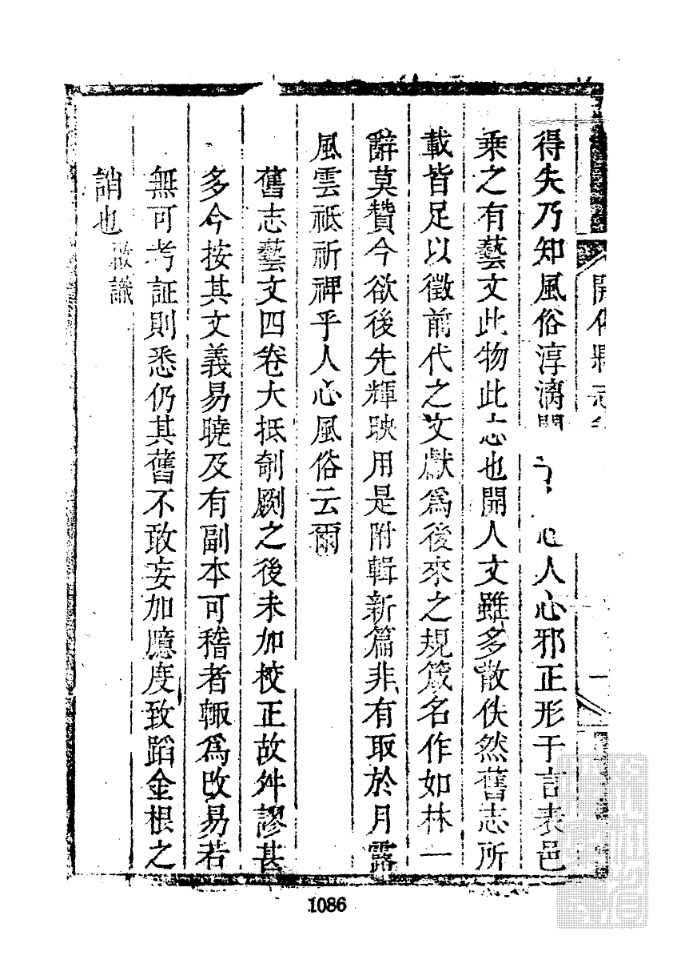 得失乃知風俗淳漓 人心邪正形于言表邑
乘之有藝文此物此志也開人文雖多散佚然舊志所
載皆足以徵前代之文獻爲後來之規箴名作如林一
辭莫贊今欲後先輝映用是附輯新篇非有取於月露
風雲祗祈裨乎人心風俗云爾
舊志藝文四卷大抵剞劂之後未加校正故舛謬甚
多今按其文義易曉及有副本可稽者輙爲改易若
無可考証則悉仍其舊不敢妄加臆度致蹈金根之
誚也 識
開化縣志
1086